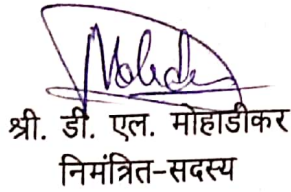 श्री. डी. एल. मोहाडीकर
निमंत्रित-सदस्य